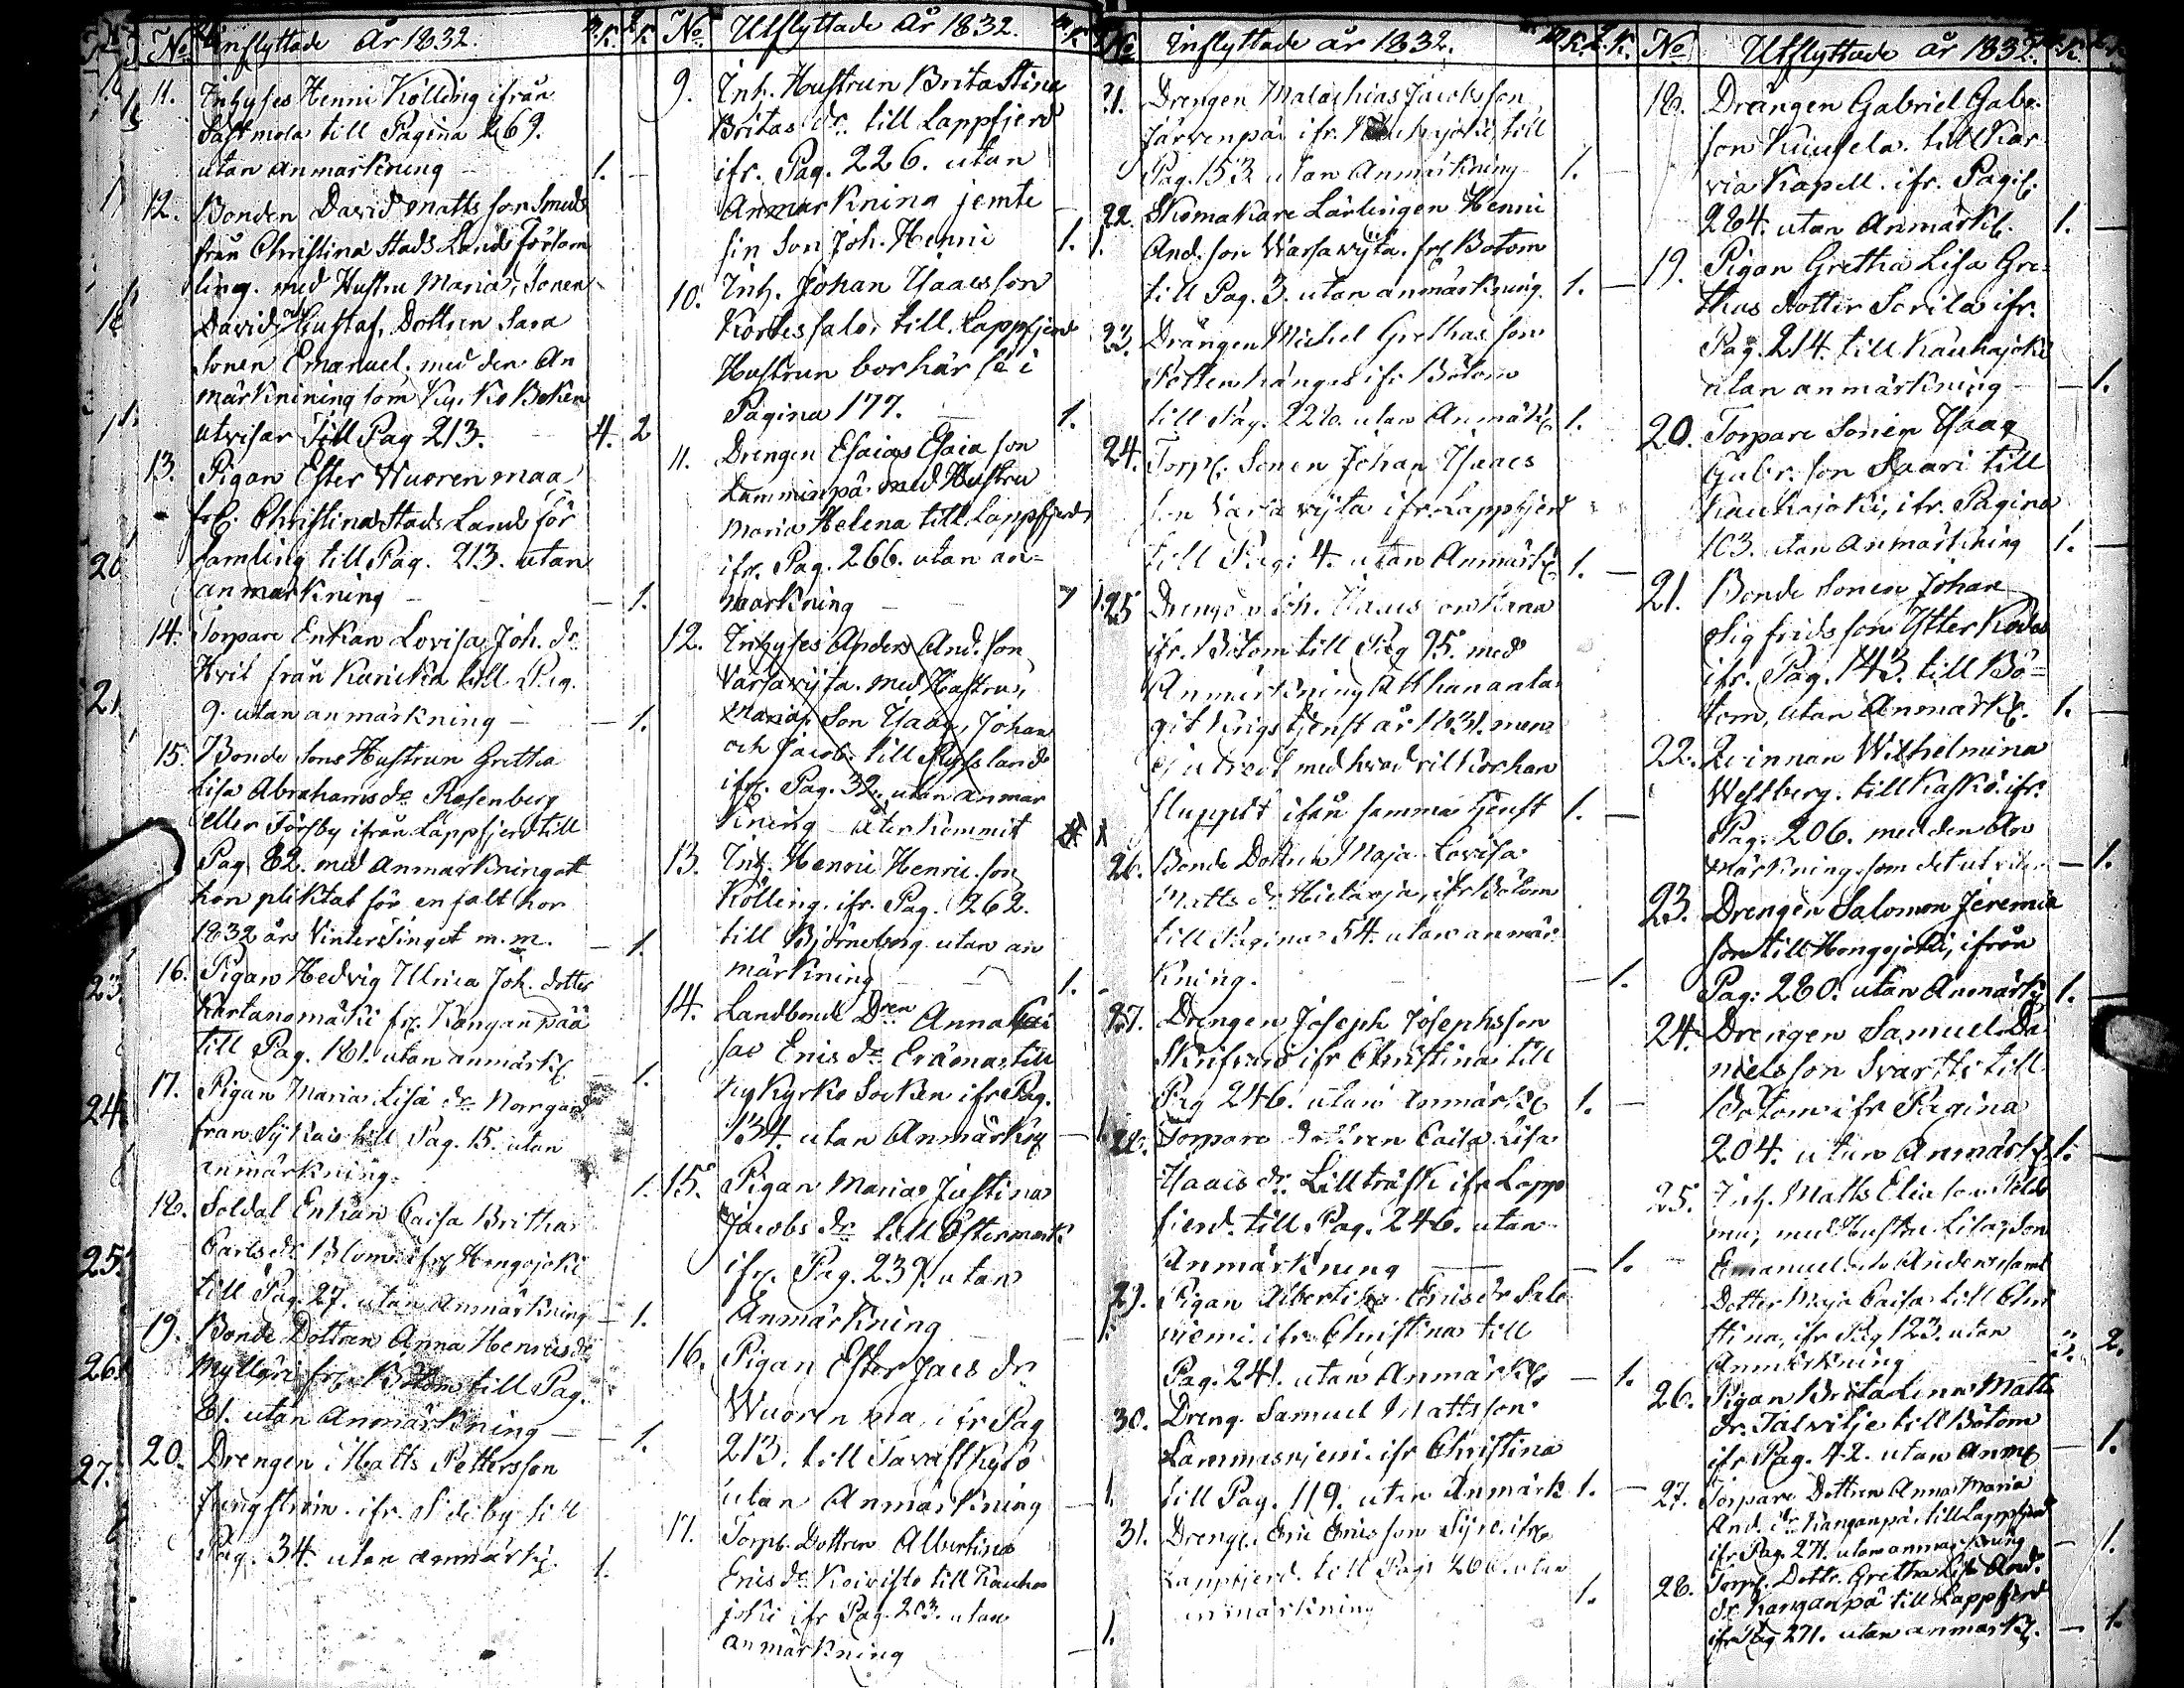 No Inflyttade År 1832. m.k. q.k.
11. Inhyses Henric Kölling ifrån
Sastmola till Pagina 269.
utan anmärkning 1. –
12. Bonden David Matts son Smeds
från Christina Stads Lands försam
ling. med Hustru Maria, Sonen
David, och Gustaf, Dottren Sara
Sonen Emanuel. med den An
märknining som Ky. Ko Boken
utvisar Till Pag 213. 4. 2
13. Pigan Ester Wuorenmaa
fr. Christina Stads Land för
samling till Pag. 213. utan
anmärkning – 1.
14. Torpare Enkan Lovisa Joh. dr
från till Pag.
9. utan anmärkning – 1.
15. Bonde Sons Hustrun Gretha
Lisa Abrahams dr Rosenberg
eller Törsby ifrån Lappfjerd till
Pag. 82. med Anmärkning att
hon pliktat för enfalt hor
1832 års Vinter Tinget m.m. – 1.
16. Pigan Hedvig Ulrica Joh. dotter
Kartanomäki fr. Kangan pää
till Pag. 181. utan anmärk – 1.
17. Pigan Maria Lisa dr Norrgård
från till Pag. 15. utan
anmärkning. 1.
18. Soldat Enkan Caisa Britha
Carls dr Blom ifr Hongojoki
till Pag. 27. utan Anmärkning – 1.
19. Bonde Dottren Anna Henrics dr
Mylläri fr. Bötom till Pag.
81. utan Anmärkning – 1.
20. Drengen Matts Pettersson
Ljungström. ifr. Sideby till
Pag. 34. utan anmärk. 1.
No Utflyttade År 1832. m.k
9. Inh. Hustrun Brita Stina
Britas dr. till Lappfjerd
ifr. Pag. 226. utan
Anmärkning jemte
sin Son Joh. Henric 1. 1.
10. Inh. Johan Isaacsson
Kortessalo, till Lappfjerd
Hustrun bor här se i
Pagina 177. 1.
11. Drengen Esaias Esaia son
Lamminpä med Hustru
Maria Helena till Lappfjerd
ifr. Pag. 266. utan an=
märkning
12. Inhyses Anders And. son
Varsavijta. med Hustru,
Maria, Son Isaac, Johan
och Jacob. till Ryssland
ifr. Pag. 32. utan anmär
kning återkommit
13. Inh. Henric Henric son
Kölling. ifr. Pag. 262.
till Björneborg utan an
märkning 1.
14. Landbonde Dren Anna Cai
sa Erics dr till
Nykyrko Socken ifr Pag.
134. utan Anmärkng – 1.
15. Pigan Maria Justina
Jacobs dr till Östermark
ifr. Pag. 239. utan
Anmärkning – 1.
16. Pigan Ester Jacs dr
Wuorenma ifr Pag
213. till Tavastkyrö
utan Anmärkning – 1.
17. Torp. Dottren Albertina
Erics dr Koivisto till Kauha
joki ifr Pag. 203. utan
anmärkning – 1.
No Inflyttade år 1832. m.k. q.k.
21. Drengen Malachias Jacobsson
Järvenpää ifr. Kauhajoki, till
Pag. 153 utan Anmärkning 1. –
22. Skomakare Lärlingen Henric
And. son Warsavijta. fr Botom
till Pag. 3. utan anmärkning. 1. –
23. Drängen Michel Grethas son
ifr Bötom
till Pag. 226. utan Anmärk 1.
24. Torp. Sonen Johan Isaacs
son Varsavijta ifr. Lappfjerd
till Pag: 4. utan Anmärk 1. –
25 Drengen Joh. Isaacs son
ifr. Bötom till Pag 95. med
Anmärkning Att han anta
git Krigstjenst år 1831. men
ej utredt med hvad vilkor han
sluppit ifrån samma tjenst 1. –
26. Bonde Dottren Maja Lovisa
Matts dr Hietaoja, ifr Bötom
till Pagina 54. utan anmär
kning. – 1.
27. Drengen Joseph Josephsson
Skrifvars ifr Christina till
Pag 246. utan anmärk 1. –
28. Torpare dottren Caisa Lisa
Isaacs dr. Lillträsk ifr Lapp
fierd. till Pag. 246. utan
Anmärkning – 1.
29. Pigan Albertina Erics dr Salo
niemi. ifr. Christina till
Pag. 241. utan Anmärk – 1.
30. Dreng. Samuel Mattsson
Lammasniemi. ifr Christina
till Pag. 119. utan Anmärk 1. –
31. Dreng. Eric Ericsson ifr
Lappfjerd. till Pag 266. utan
anmärkning 1.
No Utflyttade år 1832. m.k. q.k.
18. Drängen Gabriel Gabr.
son till Kar
via Kapell. ifr. Pag.
284. utan Anmärk. 1. –
19. Pigan Gretha Lisa Gre=
thas dotter Scrila ifr.
Pag. 214. till Kauhajoki
utan anmärkning – 1.
20. Torpare Sonen Isaac
Gabr. son Saari till
Kauhajoki, ifr. Pagina
103. utan Anmärkning 1. –
21. Bonde Sonen Johan
Sigfridsson Ytter Koda
ifr. Pag. 143. till Bö=
tom, utan Anmärk. 1. –
22. Qvinnan Wilhelmina
Westberg. till Kaskö ifr.
Pag. 206. med den An
märkning som det utviser – 1.
23. Drengen Salomon Jeremia
son till Hongojoki, ifrån
Pag: 280. utan Anmärk 1. –
24. Drengen Samuel Da
nielsson Svartti till
Bötom ifr Pagina
204. utan Anmärk 1. –
25. Inh. Matts Elia son
med Hustru Lisa, Son
Emanuel och Anders samt
Dotter Maja Caisa till Chri
stina, ifr Pag 123. utan
Anmärkning 3. 2.
26. Pigan Brita Lena Matts
dr. Talvitje till Bötom
ifr Pag. 42. utan Anm – 1.
27. Torpare Dottren Anna Maria
And. dr Kanganpä, till Lappfjerd
ifr Pag. 271. utan anmärkning – 1.
28. Torp. Dottr. Gretha Lisa And.
dr Kanganpä till Lappfjerd
ifr Pag 271. utan anmärk. – 1.